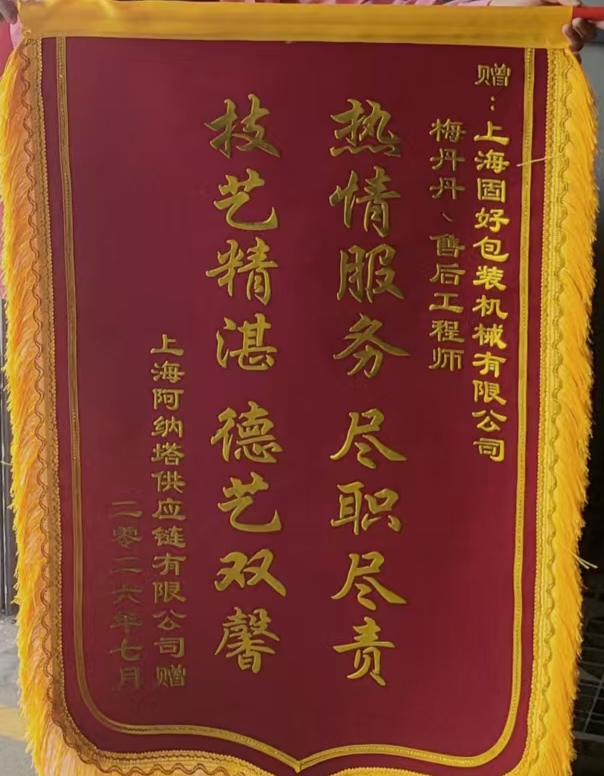 赠：上海固好包装机械有限公司
梅丹丹、售后工程师
热情服务 尽职尽责
技艺精湛 德艺双馨
上海阿纳塔供应链有限公司赠
二零二六年七月